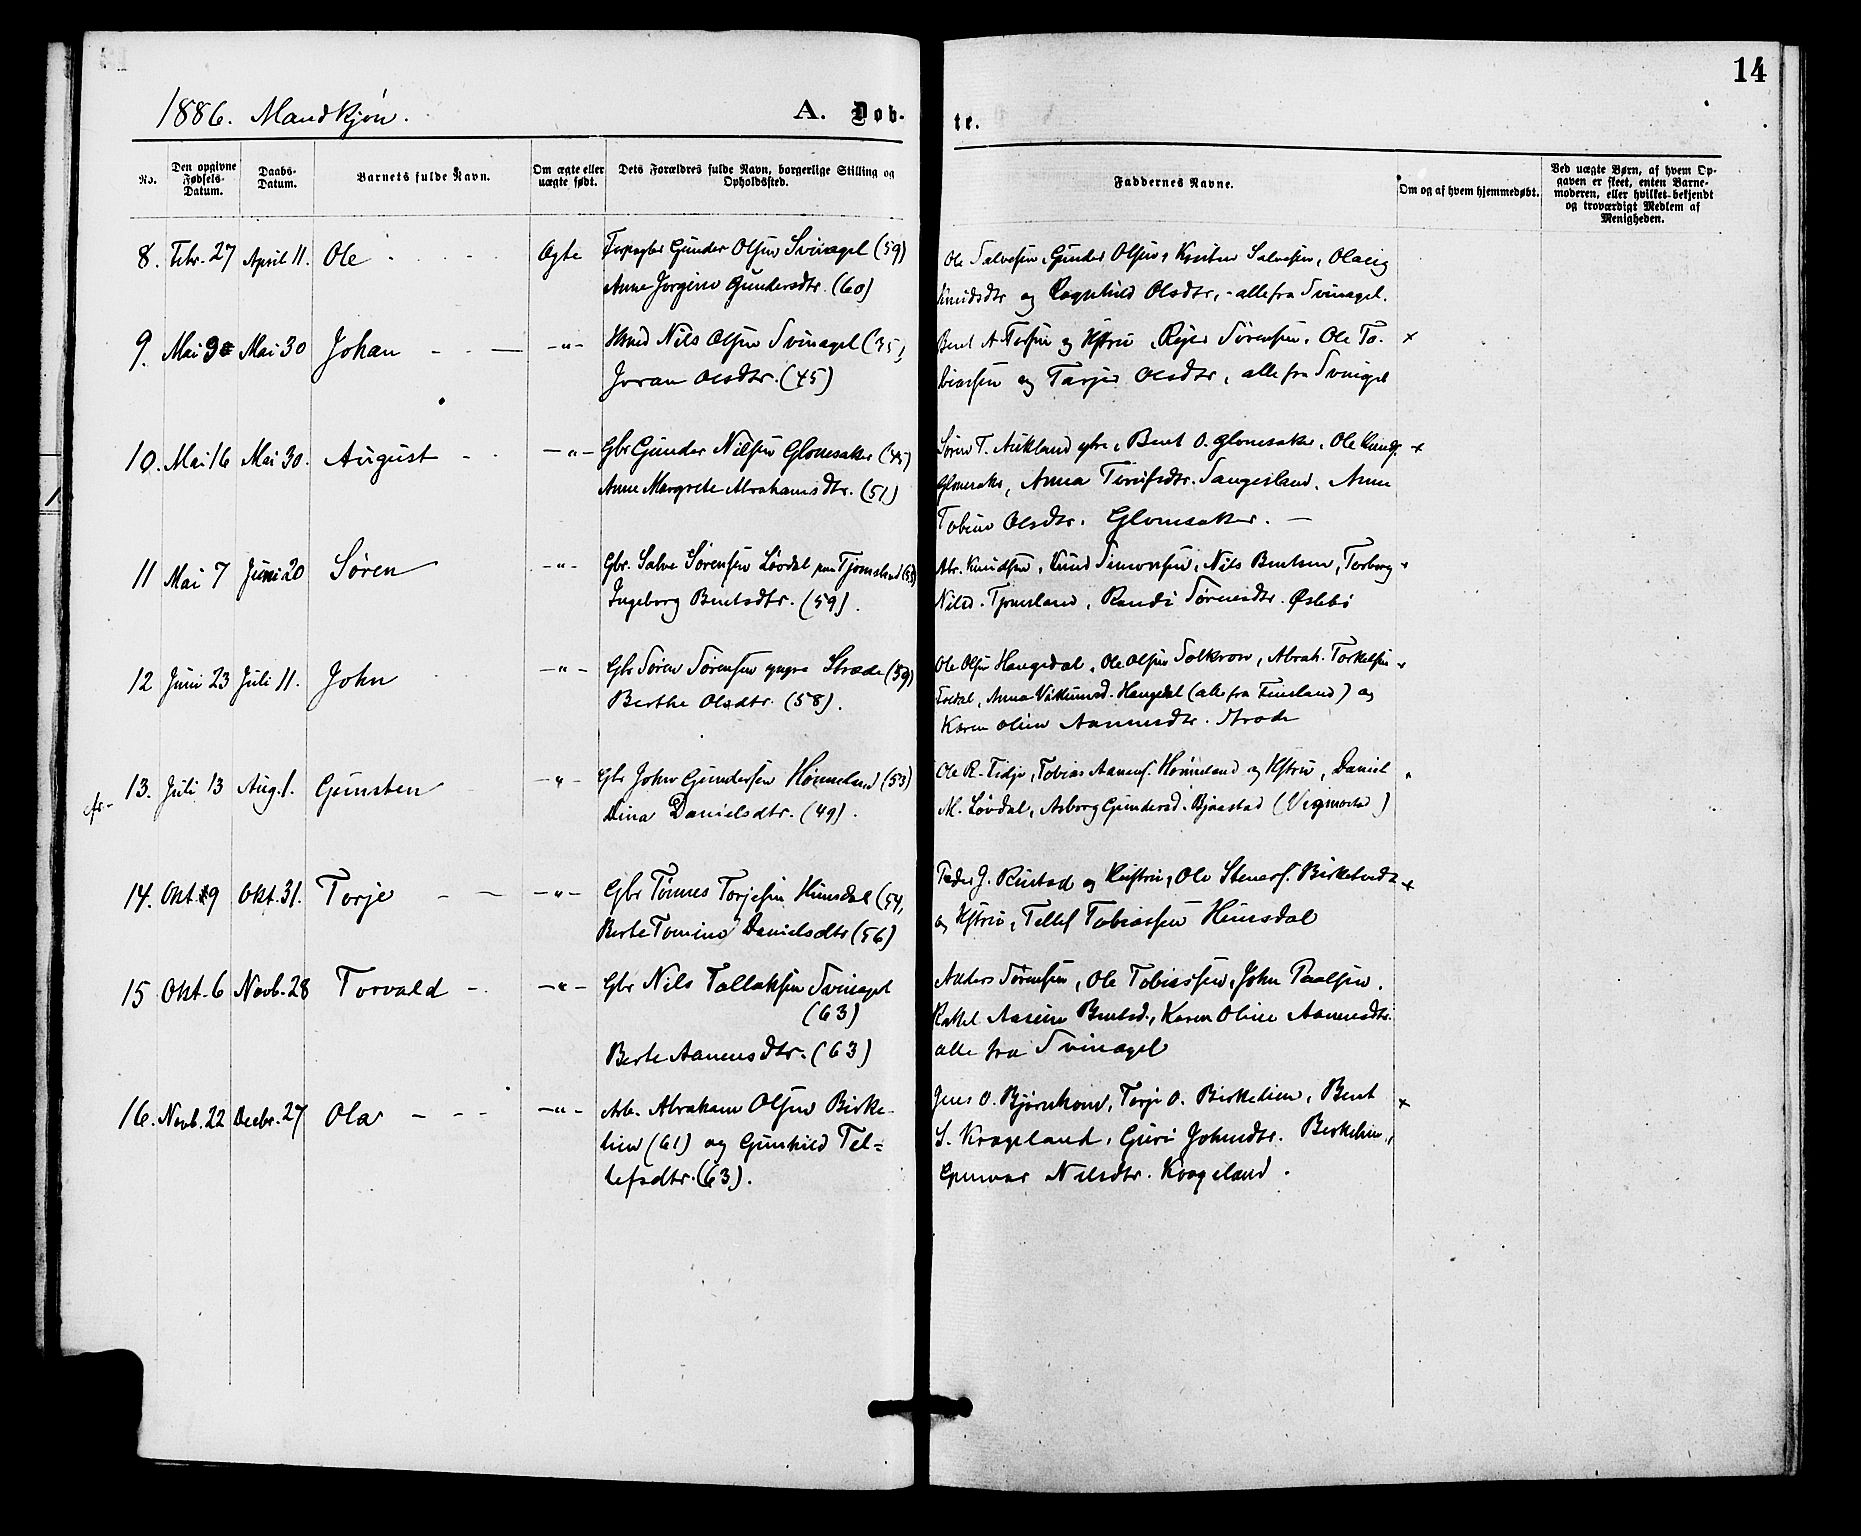 14
1886. Mandkjøn.
A. Døb-
te.
No.
Den opgivne Fødsels-Datum.
Daabs-Datum.
Barnets fulde Navn.
Om ægte eller uægte født.
Dets Forældres fulde Navn, borgerlige Stilling og Opholdssted.
Faddernes Navne.
Om og af hvem hjemmedøbt.
Ved uægte Børn, af hvem Op-
gaven er skeet, enten Barne-
moderen, eller hvilket bekjendt
og troværdigt Medlem af
Menigheden.
8. Febr. 27 April 11. Ole Ægte Gunder Olsen Svinagel (59)
Anne Jorgine Gundersdtr. (60)
Ole Salvesen, Gunder Olsen, Salvesen, Olavig
og Ragnhild Olsdtr, - alle fra Svinagel.
9. Mai Mai 30 Johan - - — -"- Nils Olsen Svinagel (35,
Joran Olsdtr. (45)
Bent A og Hstru, Sørensen, Ole To-
biassen og Tarjer Olsdtr, alle fra Svinagel
×
10. Mai 16 Mai 30. August - - -"- Gbr Gunder Nilsen Glomsaker (45)
Anne Margrete Abrahamsdtr. (51)
Søren T. Aukland, Bent O. Glomsaker, Ole
Glomsaker, Anna, Anne
Tobine Olsdtr. Glomsaker. —
×
11 Mai 7 Juni 20 Søren -"- Gbr. Salve Sørensen Løvdal Tjomsland
Ingeborg Bentsdtr. (59).
Abr. Knudsen, Knud Simonsen, Nils Bentsen, Torborg
Nilsd. Tjomsland, Randi Sørensdtr. Øslebø
×
12 Juni 23 Juli 11. John -"- Gbr Søren Sørensen yngre Stræde (59)
Berthe Olsdtr. (58).
Ole Olsen Haugedal, Ole Olsen, Abrah. Torkelsen
Anna Haugedal (alle fra Finsland) og
Karen Oline Aanensdtr. Stræde
×
13. Juli 13 Aug. 1. Gunsten -"- Gbr John Gundersen Hønneland (53)
Dina Danielsdtr. (49).
Ole R. Tidje, Tobias Aanens. Hønneland og Hstru, Daniel
M. Løvdal, Asborg Gundersd. Bjaastad (Vigmostad)
14. Okt. 9 Okt. 31. Torje - — -"- Gbr Tønnes Torjesen Himsdal (54,
Berte Tomine Danielsdtr (56)
Peder J. Rustad og Hustru, Ole Steners. Birketvedt
og Hstru, Tellef Tobiassen Himsdal
×
15 Okt. 6 Novb. 28 Torvald - -"- Gbr Nils Tallaksen Svinagel
(63)
Berte Aanensdtr. (63)
Anders Sørensen, Ole Tobiassen, John Paalsen,
Rakel Aasine Bentsd., Karen Oline Aanensdtr.
alle fra Svinagel
16. Novb. 22 Decbr. 27 Ola - - - -"- Arb. Abraham Olsen Birke-
lien (61) og Gunhild Tel-
lefsdtr. (63).
Jens O. Bjørnhom, Torje O. Birkelien, Bent
S. Kraageland, Guri Johnsdtr. Birkelien,
Gunvor Nilsdtr. Kraageland.
×